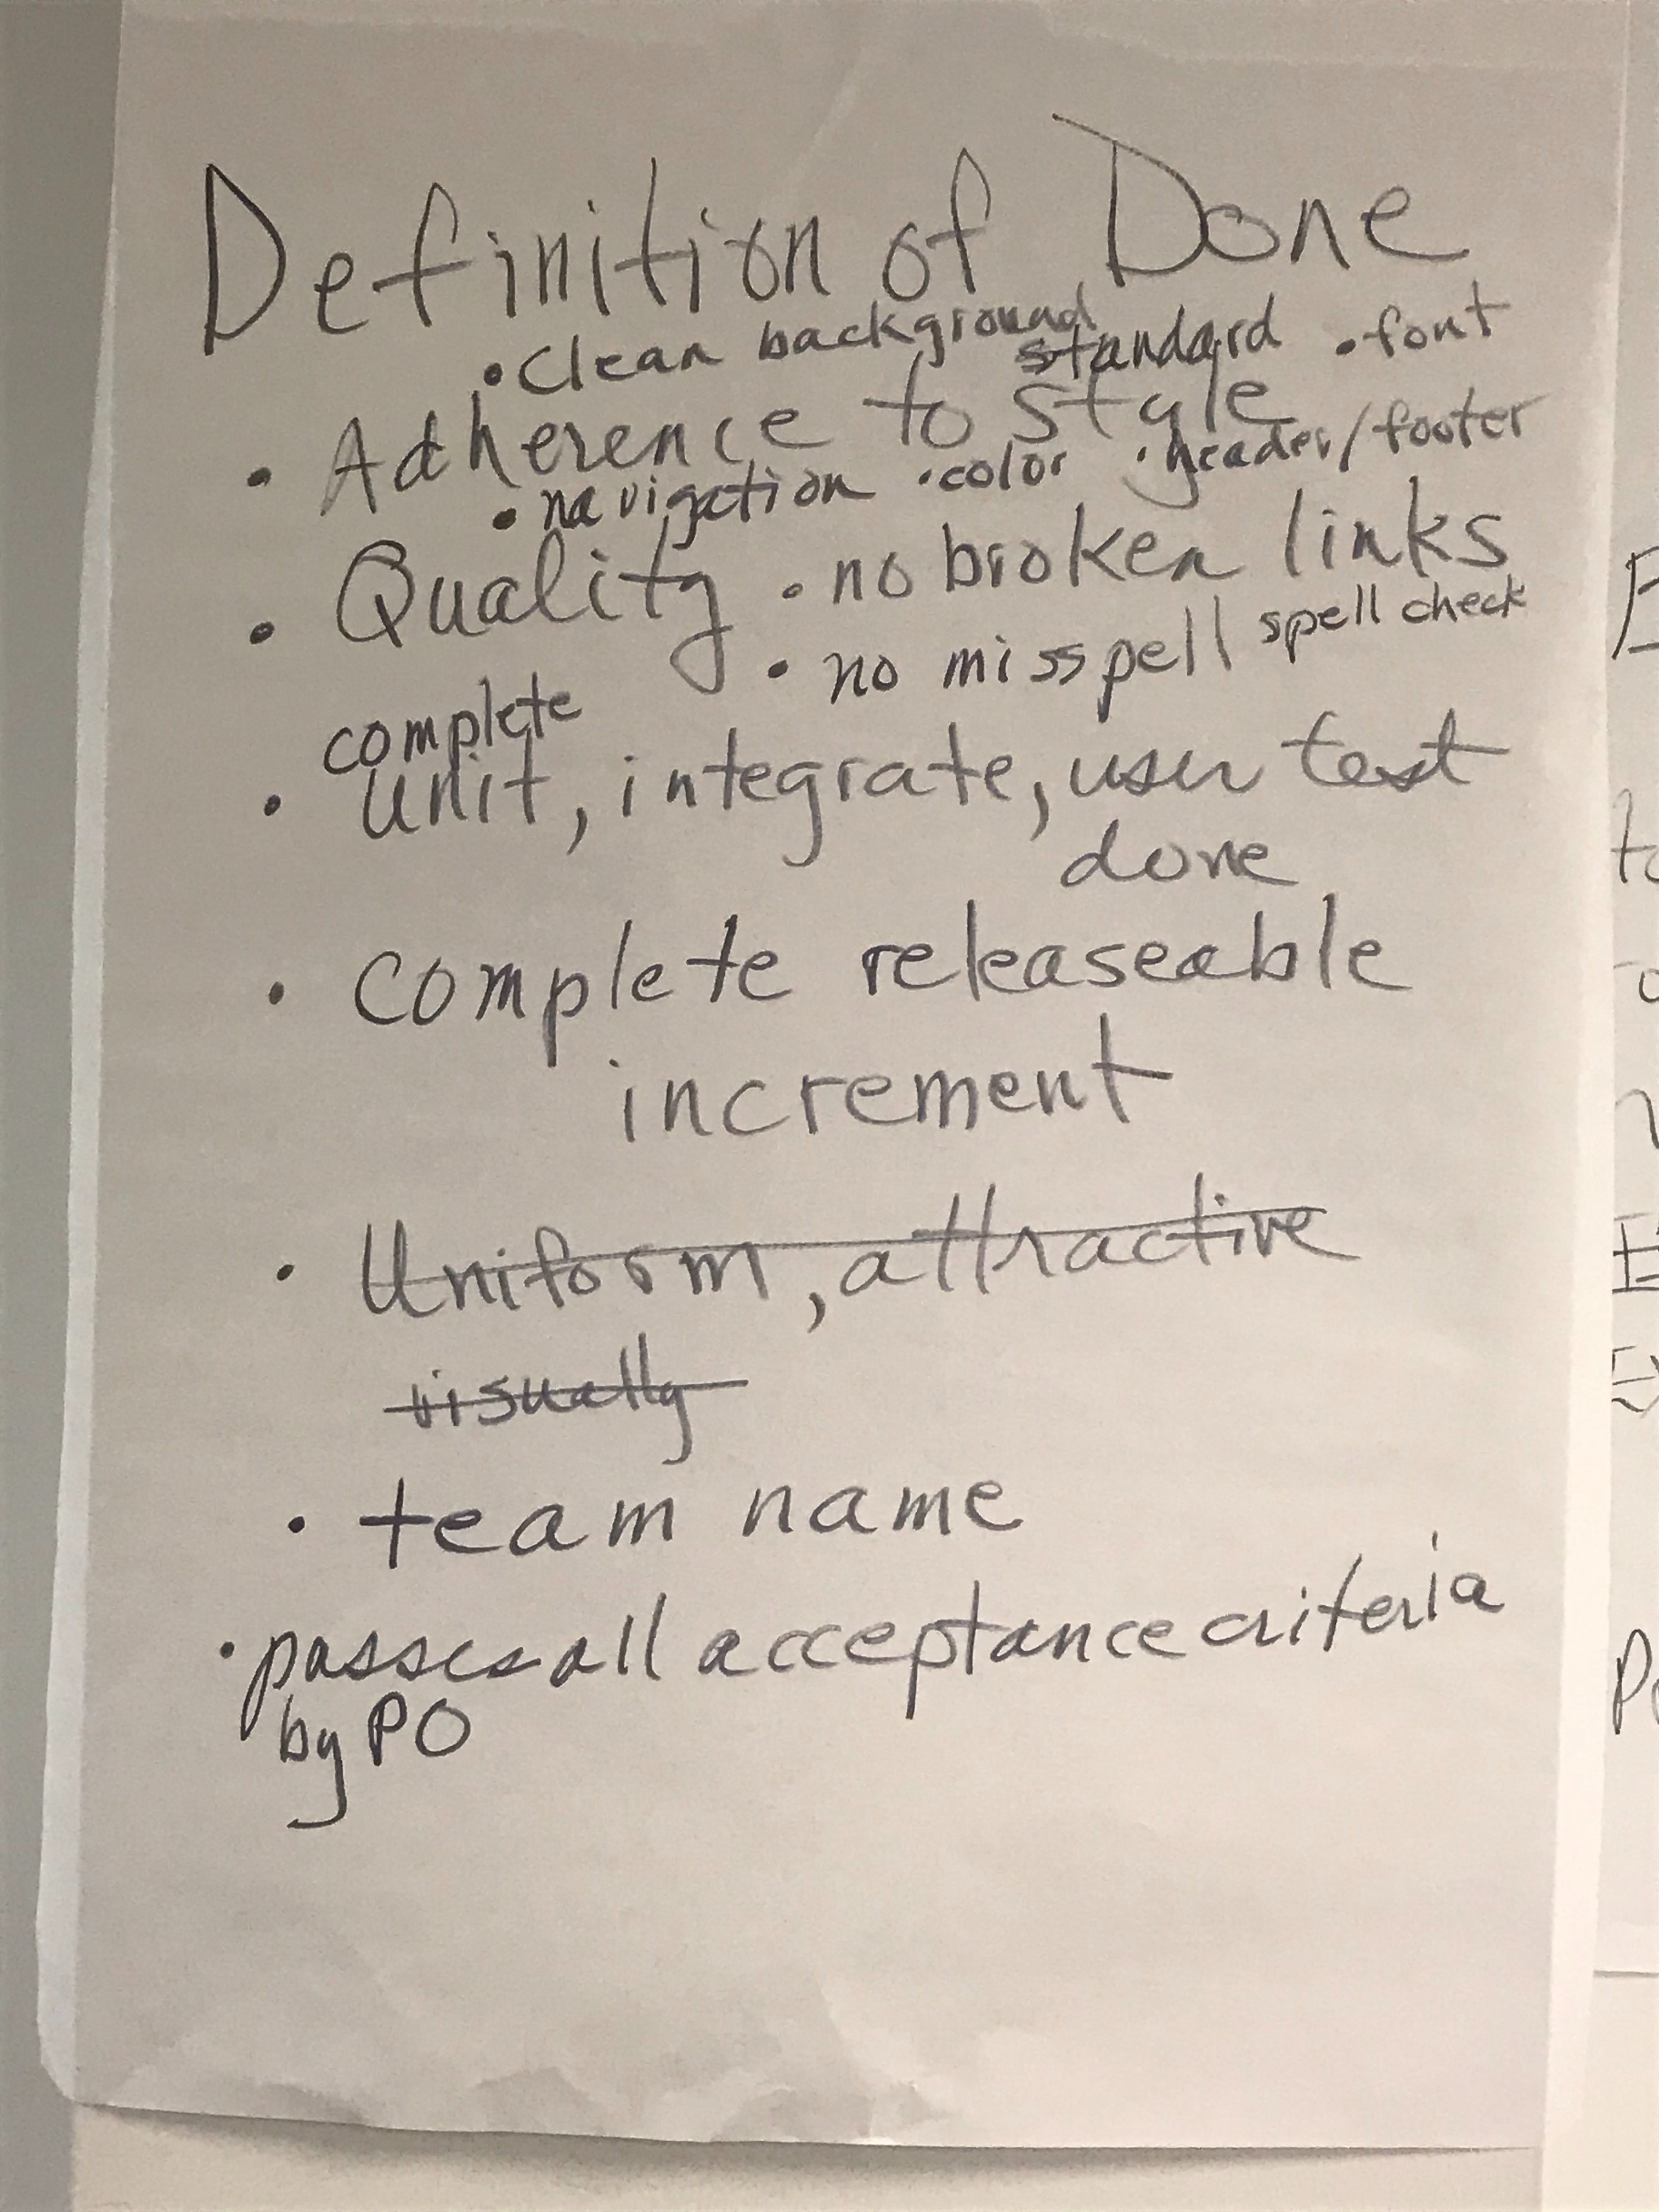 Definition of Done
• Clean background standard • font
• Adherence to style
• navigation • color • header/footer
• Quality • no broken links
• no misspell spell check
complete
• Unit, integrate, user test
done
• complete releaseable
increment
• Uniform, attractive
visually
• team name
• passes all acceptance criteria
by PO